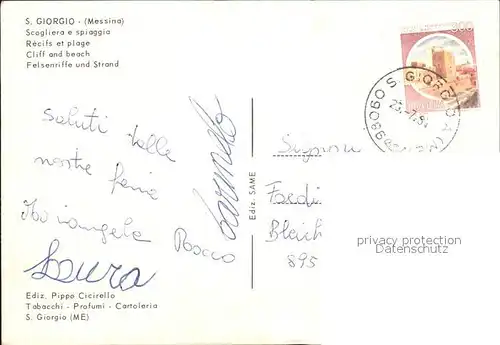 S. GIORGIO - (Messina)
Scogliera e spiaggia
Récifs et plage
Cliff and beach
Felsenriffe und Strand
Saluti dalle
nostre ferie
Mariangela Rocco
Carmelo
Laura
Ediz. Pippo Cicirello
Tabacchi - Profumi - Cartoleria
S. Giorgio (ME)
Ediz. SAME
98060 S. GIORGIO
Signori
Bleich
895
privacy protection
Datenschutz